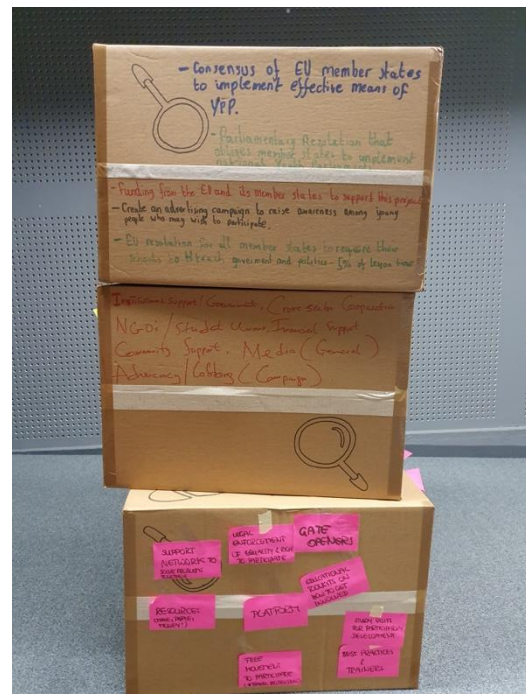 - Consensus of EU member states
to implement effective means of
YPP.
- Parliamentary Resolution that
obliges member states to implement
national Youth
- Funding from the EU and its member states to support this project
- Create an advertising campaign to raise awareness among young
people who may wish to participate.
- EU resolution for all member states to require their
schools to teach government and politics - 5% of lesson time
Institutional Support / Government, Cross sector Cooperation
NGOs / Student Unions, Financial Support
Community Support, Media (General)
Advocacy / Lobbying (Campaign)
SUPPORT
NETWORKS TO
TOGETHER
LEGAL
ENFORCEMENT
OF EQUALITY & RIGHT
TO PARTICIPATE
GATE
OPENERS
EDUCATIONAL
TOOLKITS ON
HOW TO GET
INVOLVED
RESOURCES
MONEY!)
PLATFORM
FOR PARTICIPATION
DEVELOPMENT
FREE
TO PARTICIPATE
BEST PRACTICES
&
TRAINERS